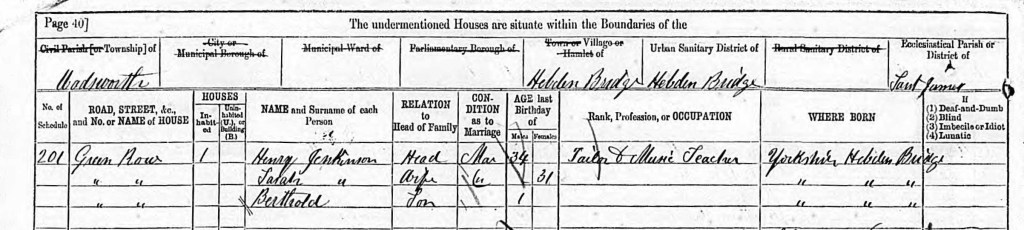 Page 40] The undermentioned Houses are situate within the Boundaries of the
Civil Parish [or Township] of City or Municipal Borough of Municipal Ward of Parliamentary Borough of Town or Village or Hamlet of Urban Sanitary District of Rural Sanitary District of Ecclesiastical Parish or District of
Wadsworth Hebden Bridge Hebden Bridge Saint James
No. of Schedule ROAD, STREET, &c., and No. or NAME of HOUSE HOUSES In-habit-ed Unin-habited (U.), or Building (B.) NAME and Surname of each Person RELATION to Head of Family CON-DITION as to Marriage AGE last Birthday of Males Females Rank, Profession, or OCCUPATION WHERE BORN If (1) Deaf-and-Dumb (2) Blind (3) Imbecile or Idiot (4) Lunatic
201 Green Row 1 Henry Jenkinson Head Mar 34 Tailor & Music Teacher Yorkshire Hebden Bridge
" " Sarah " Wife " 31 " " "
" " Berthold Son 1 " " "